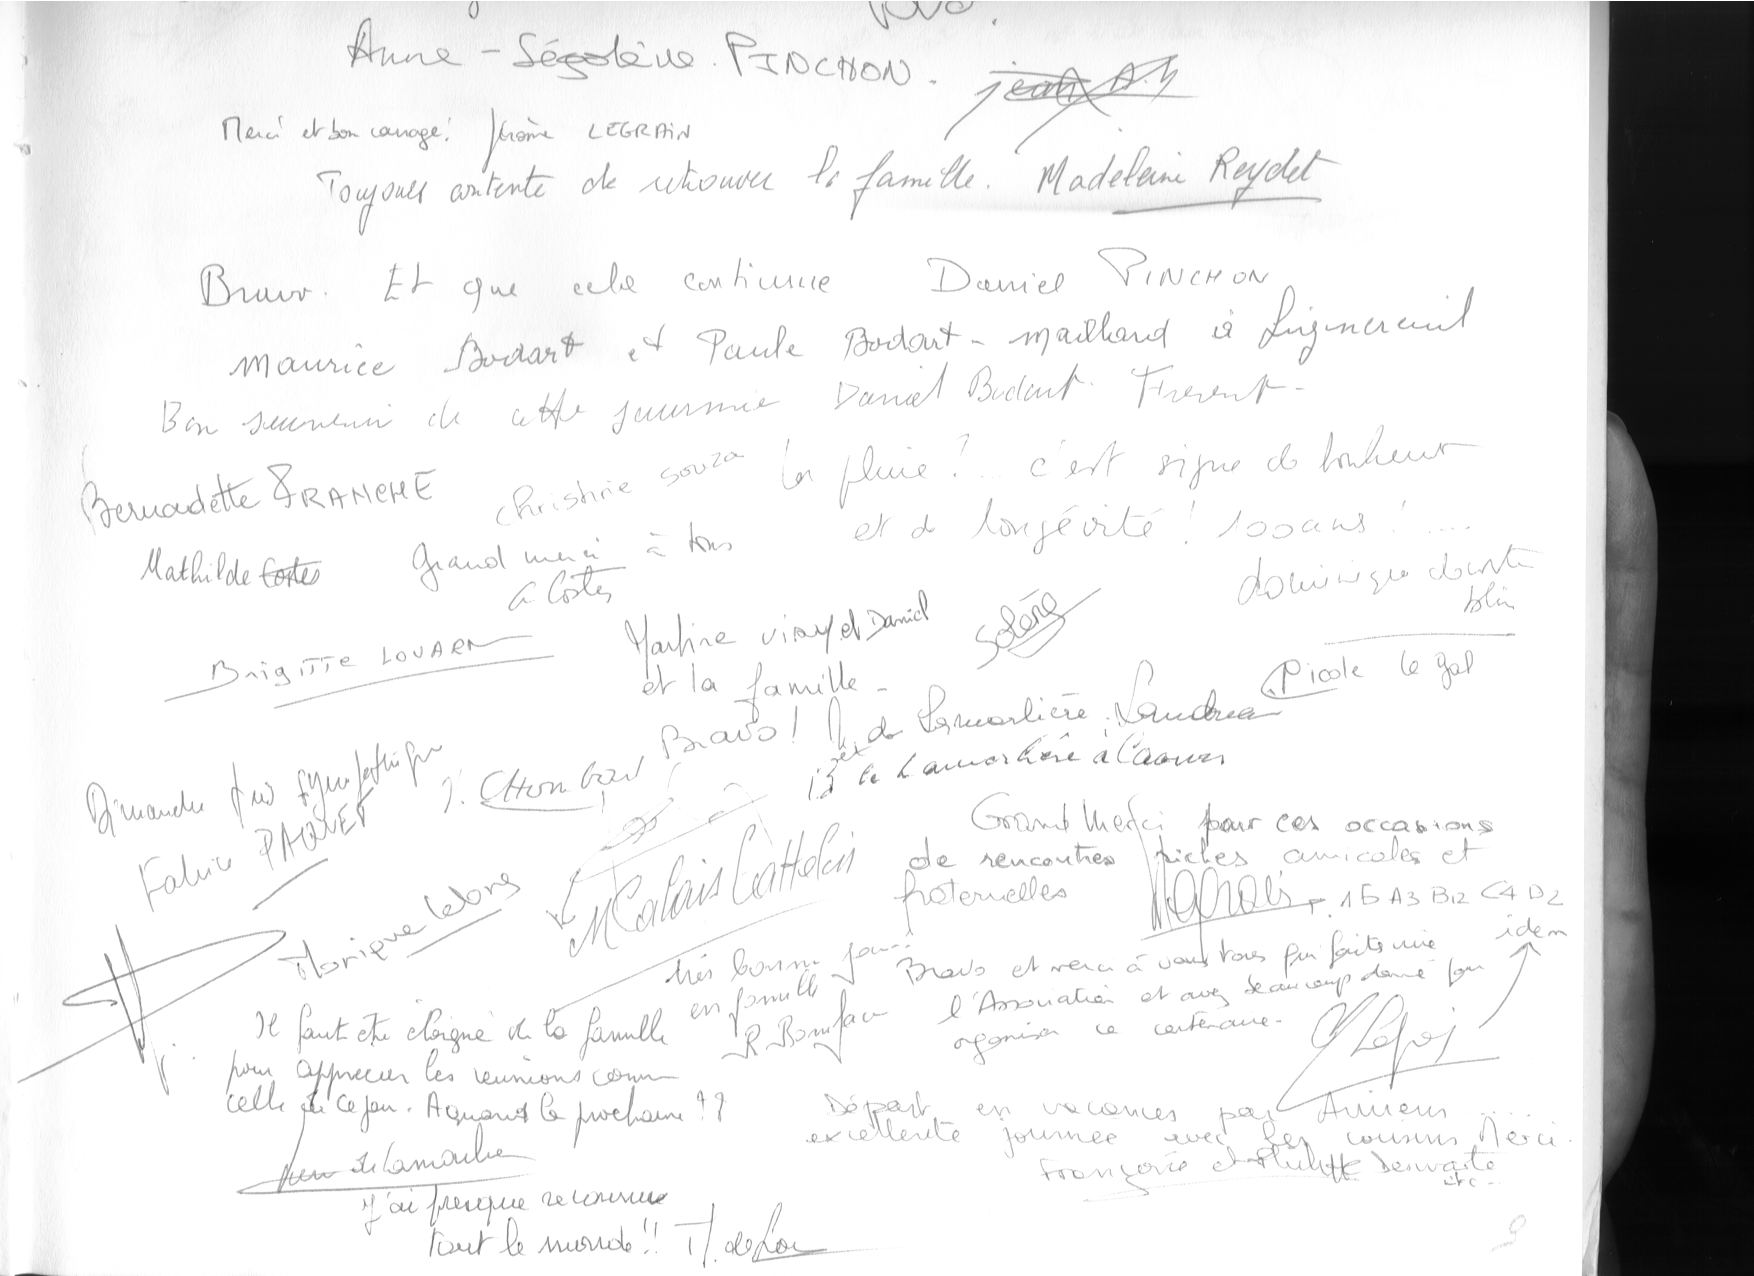 Anne-Ségolène PINCHON.
Merci et bon courage! Jérôme LEGRAIN
Toujours contente de retrouver la famille. Madeleine Reydet
Bravo. Et que cela continue Daniel PINCHON
Maurice Bodart et Paule Bodart-Maillard à Lignereuil
Bon souvenir de cette journée Daniel Bodart
Bernadette FRANCHE
Christine Souza
La pluie?... c'est signe de bonheur
et de longévité! 100 ans!....
Mathilde Costes
Grand merci à tous
G Costes
Dominique
Brigitte LOUARN
Martine et Daniel
et la famille -
Solène
le Gal
Bravo! de Lamorlière
de Lamorlière à
Dimanche très sympathique
PAQUET
Grand Merci pour ces occasions
de rencontres riches amicales et
fraternelles
15 A3 B12 C4 D2
M Calais Cattelin
Monique Lelong
très bonne
en famille
R. Boniface
Bravo et merci à vous tous qui faites vivre
l'Association et avez beaucoup donné pour
organiser ce centenaire.
idem
Il faut être éloigné de la famille
pour apprécier les réunions comme
celle de ce jour. A quand la prochaine??
J'ai presque reconnu
tout le monde!!
Départ en vacances par Amiens ....
excellente journée avec les cousins. Merci.
Françoise et Philippe
etc..
9